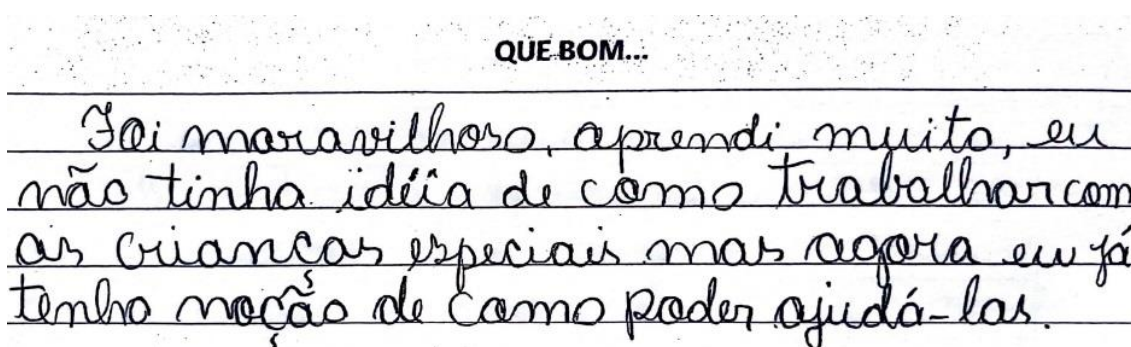 QUE BOM...
Foi maravilhoso, aprendi muito, eu
não tinha idéia de como trabalhar com
as crianças especiais mas agora eu já
tenho noção de como poder ajudá-las.